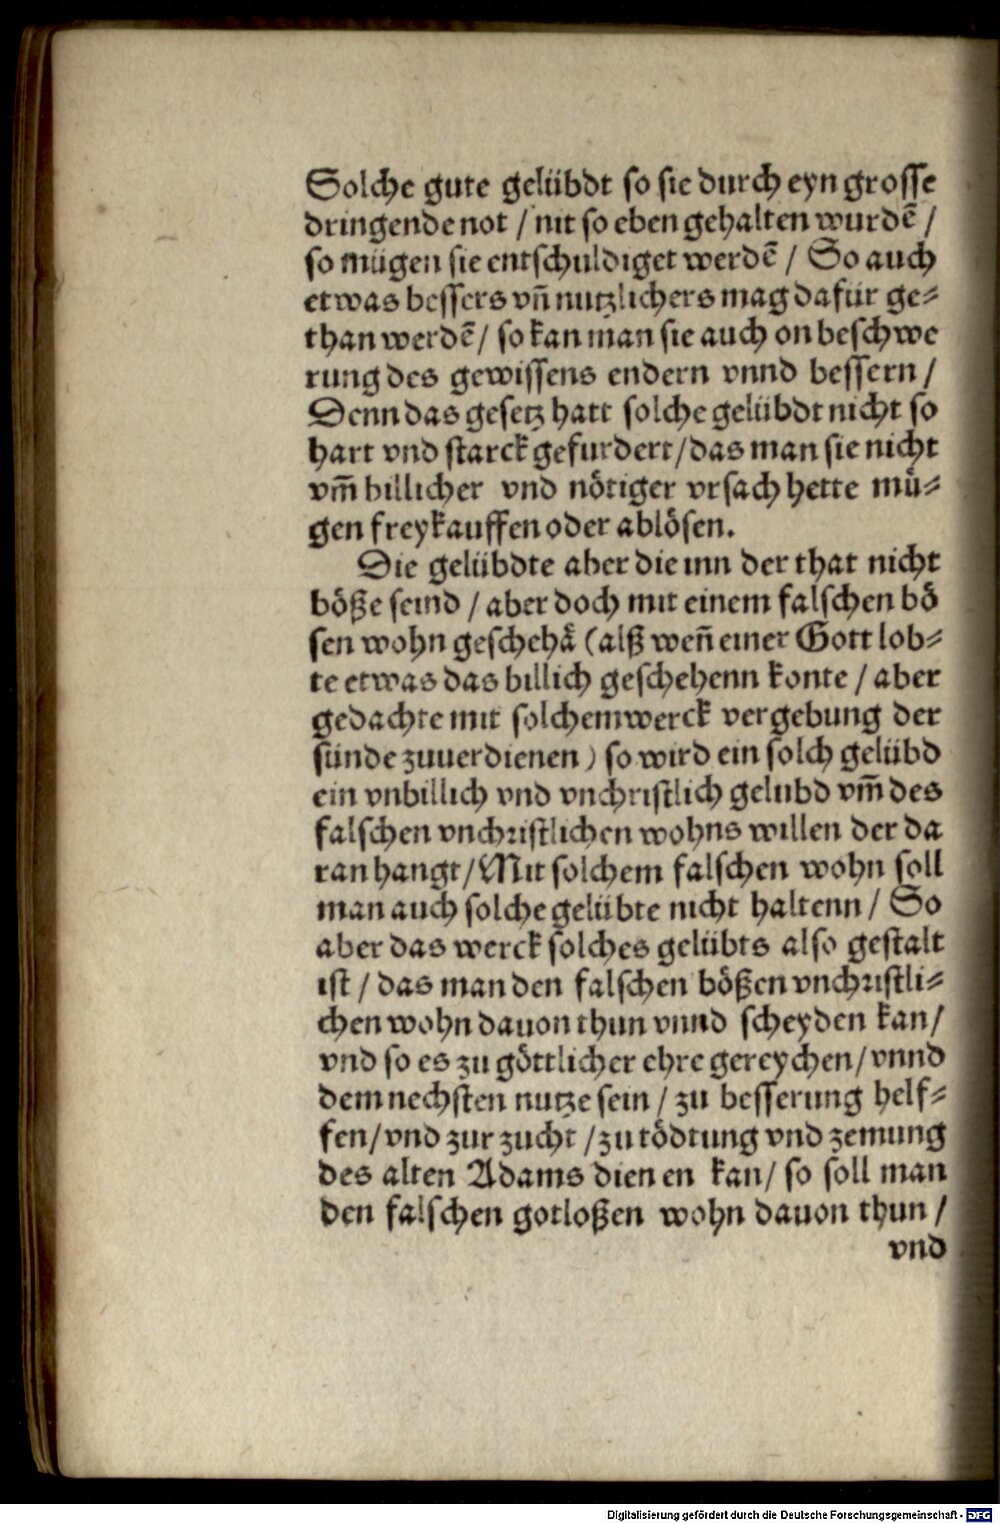 Solche gute gelübdt so sie durch eyn grosse
dringende not / nit so eben gehalten wurdē /
so mügen sie entschuldiget werdē / So auch
etwas bessers vñ nutzlichers mag dafür ge⸗
than werdē / so kan man sie auch on beschwe
rung des gewissens endern vnnd bessern /
Denn das gesetz hatt solche gelübdt nicht so
hart vnd starck gefurdert / das man sie nicht
vm̃ billicher vnd nötiger vrsach hette mü⸗
gen freykauffen oder ablösen.
Die gelübdte aber die inn der that nicht
böße seind / aber doch mit einem falschen bö
sen wohn geschehā (alß weñ einer Gott lob⸗
te etwas das billich geschehenn konte / aber
gedachte mit solchem werck vergebung der
sünde zuuerdienen) so wird ein solch gelübd
ein vnbillich vnd vnchristlich gelubd vm̃ des
falschen vnchristlichen wohns willen der da
ran hangt / Mit solchem falschen wohn soll
man auch solche gelübte nicht haltenn / So
aber das werck solches gelübts also gestalt
ist / das man den falschen bößen vnchristli⸗
chen wohn dauon thun vnnd scheyden kan /
vnd so es zu göttlicher ehre gereychen / vnnd
dem nechsten nutze sein / zu besserung helf⸗
fen / vnd zur zucht / zu tödtung vnd zemung
des alten Adams dien en kan / so soll man
den falschen gotloßen wohn dauon thun /
vnd
Digitalisierung gefördert durch die Deutsche Forschungsgemeinschaft - DFG